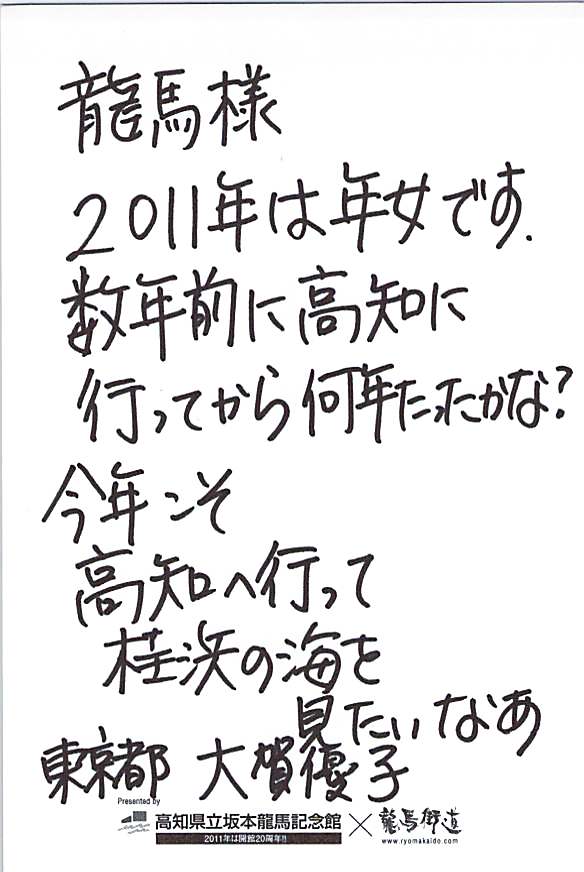 龍馬様
2011年は年女です.
数年前に高知に
行ってから何年たったかな?
今年こそ
高知へ行って
桂浜の海を
見たいなあ
東京都 大賀優子
Presented by
高知県立坂本龍馬記念館 × 龍馬街道
2011年は開館20周年!!
www.ryomakaido.com